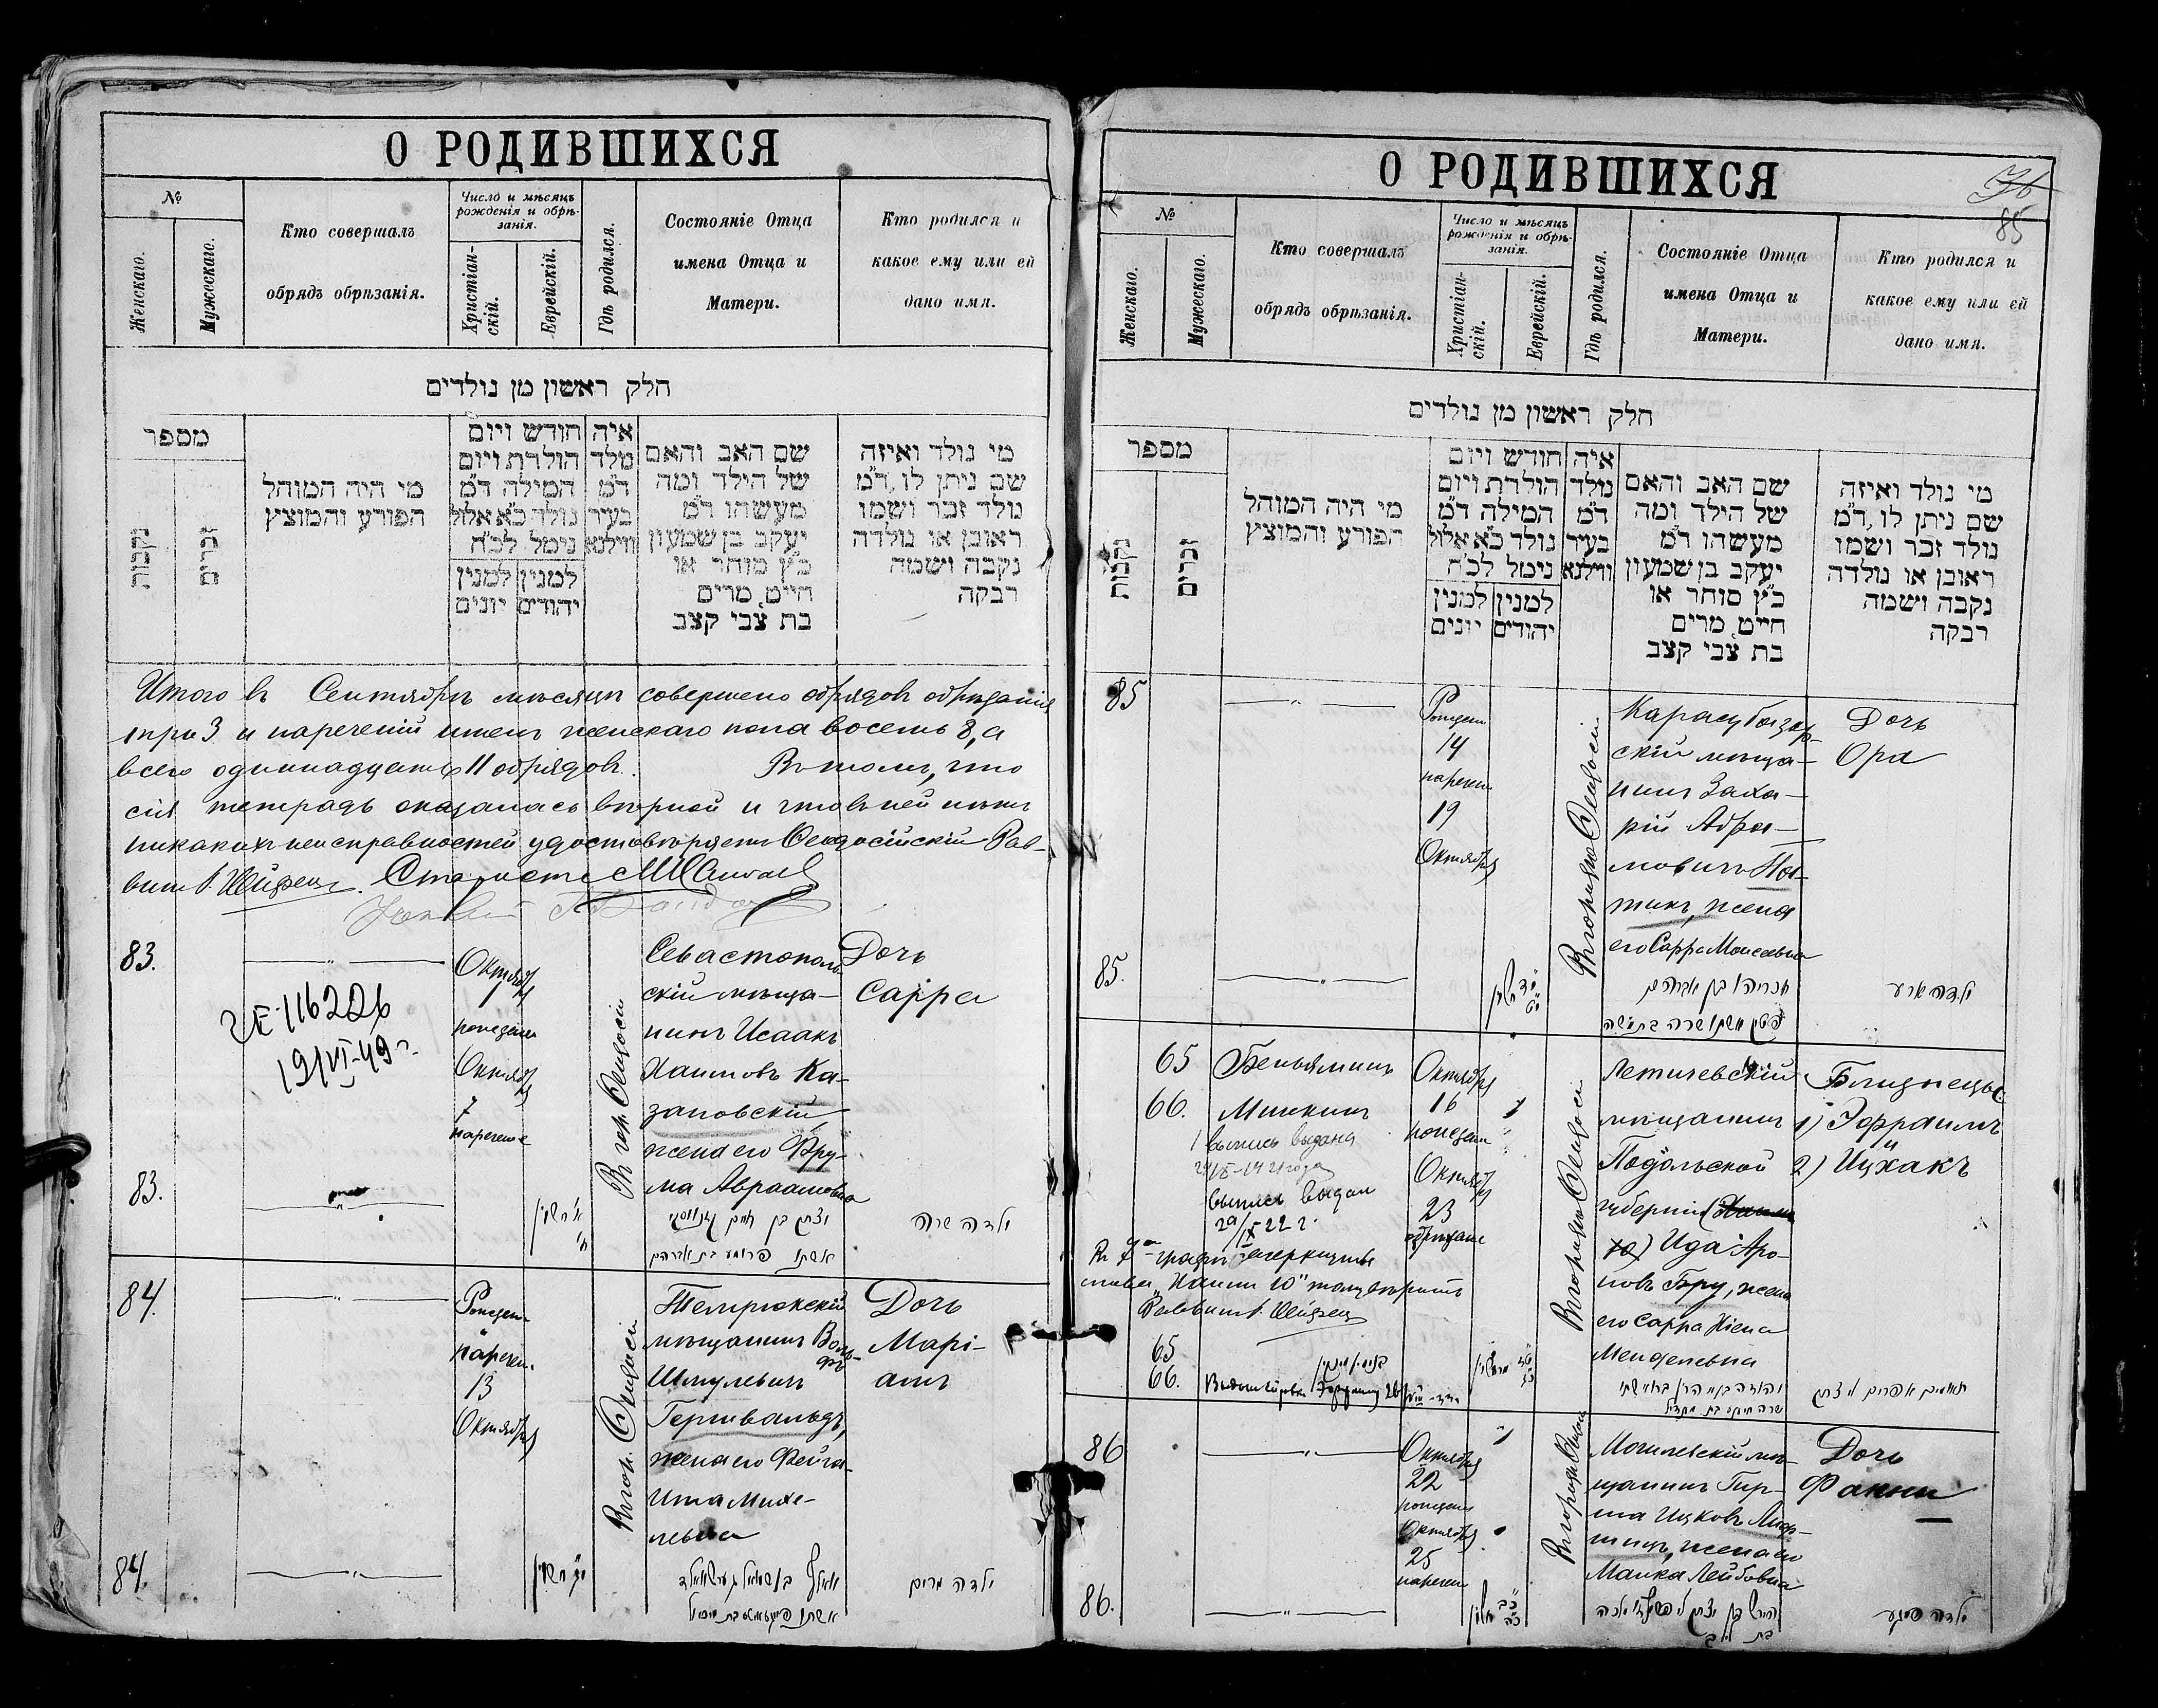 О РОДИВШИХСЯ
№
Женскаго.
Мужескаго.
Кто совершалъ
обрядъ обрѣзанія.
Число и мѣсяцъ
рожденія и обрѣ-
занія.
Христіан-
скій.
Еврейскій.
Гдѣ родился.
Состояніе Отца
имена Отца и
Матери.
Кто родился и
какое ему или ей
дано имя.
חלק ראשון מן נולדים
מספר
נקבות
זכרים
מי היה המוהל
הפורע והמוצץ
חודש ויום
הולדת ויום
המילה ד"מ
נולד כ"א אלול
נימל לכ"ח
למנין למנין
יהודים יונים
איה
נולד
ד"מ
בעיר
ווילנא
שם האב והאם
של הילד ומה
מעשהו ד"מ
יעקב בן שמעון
כ"ץ סוחר או
חייט, מרים
בת צבי קצב
מי נולד ואיזה
שם ניתן לו, ד"מ
נולד זכר ושמו
ראובן או נולדה
נקבה ושמה
רבקה
Итого въ Сентябрѣ мѣсяцѣ совершено обрядовъ обрѣзанія
три 3 и нареченій именъ женскаго пола восемь 8, а
всего одиннадцать 11 обрядовъ. Въ томъ, что
сія тетрадь оказалась вѣрной и что въ ней нѣтъ
никакихъ неисправностей удостовѣряетъ Ѳеодосійскій Рав-
винъ Староста
83.
Октября
1
рожденіе
Октября
7
нареченіе
Въ гор. Ѳеодосіи
Севастополь-
скій мѣща-
нинъ Исаакъ
Хаимовъ Ка-
зановскій
жена его Фру-
ма Авраамовна
Дочь
Сарра
116226
19/VI-49 г.
83.
אשתו פרומע בת אברהם
ילדה שרה
84.
Рожден.
и
нарече.
13
Октября
Въ гор. Ѳеодосіи
Темрюкскій
мѣщанинъ Воль-
фъ
Шмулевичъ
Гершвальдъ,
жена его Фейга-
Ита Михе-
левна
Дочь
Марі-
амъ
84.
ילדה מרים
О РОДИВШИХСЯ
76
85
№
Женскаго.
Мужескаго.
Кто совершалъ
обрядъ обрѣзанія.
Число и мѣсяцъ
рожденія и обрѣ-
занія.
Христіан-
скій.
Еврейскій.
Гдѣ родился.
Состояніе Отца
имена Отца и
Матери.
Кто родился и
какое ему или ей
дано имя.
חלק ראשון מן נולדים
מספר
נקבות
זכרים
מי היה המוהל
הפורע והמוצץ
חודש ויום
הולדת ויום
המילה ד"מ
נולד כ"א אלול
נימל לכ"ח
למנין למנין
יהודים יונים
איה
נולד
ד"מ
בעיר
ווילנא
שם האב והאם
של הילד ומה
מעשהו ד"מ
יעקב בן שמעון
כ"ץ סוחר או
חייט, מרים
בת צבי קצב
מי נולד ואיזה
שם ניתן לו, ד"מ
נולד זכר ושמו
ראובן או נולדה
נקבה ושמה
רבקה
85
Рожден
14
наречен
19
Октября
Въ городѣ Ѳеодосіи
Карасубазар-
скій мѣща-
нинъ Заха-
рій Абра-
мовичъ
жена
его Сарра Моисеевна
Дочь
Ора
85.
65
66.
Беньяминъ
Минкинъ
Октября
16
рожден
Октября
23
обрѣзаніе
Въ городѣ Ѳеодосіи
Летичевскій
мѣщанинъ
Подольской
губерніи
Ида Аро-
новъ Бру, жена
его Сарра Хіена
Менделевна
Близнецы
1) Эфраимъ
и
2) Ицхакъ
выпись выдана
выпись выдан
29/IX 22 г.
65
66.
תאומים אפרים ויצחק
86
Октября
22
рожден
Октября
25
наречен
Въ городѣ Ѳеодосіи
Могилевскій мѣ-
щанинъ Гир-
ша Ицковъ Лиф-
шицъ, жена его
Малка Лейбовна
Дочь
Фанни
86.